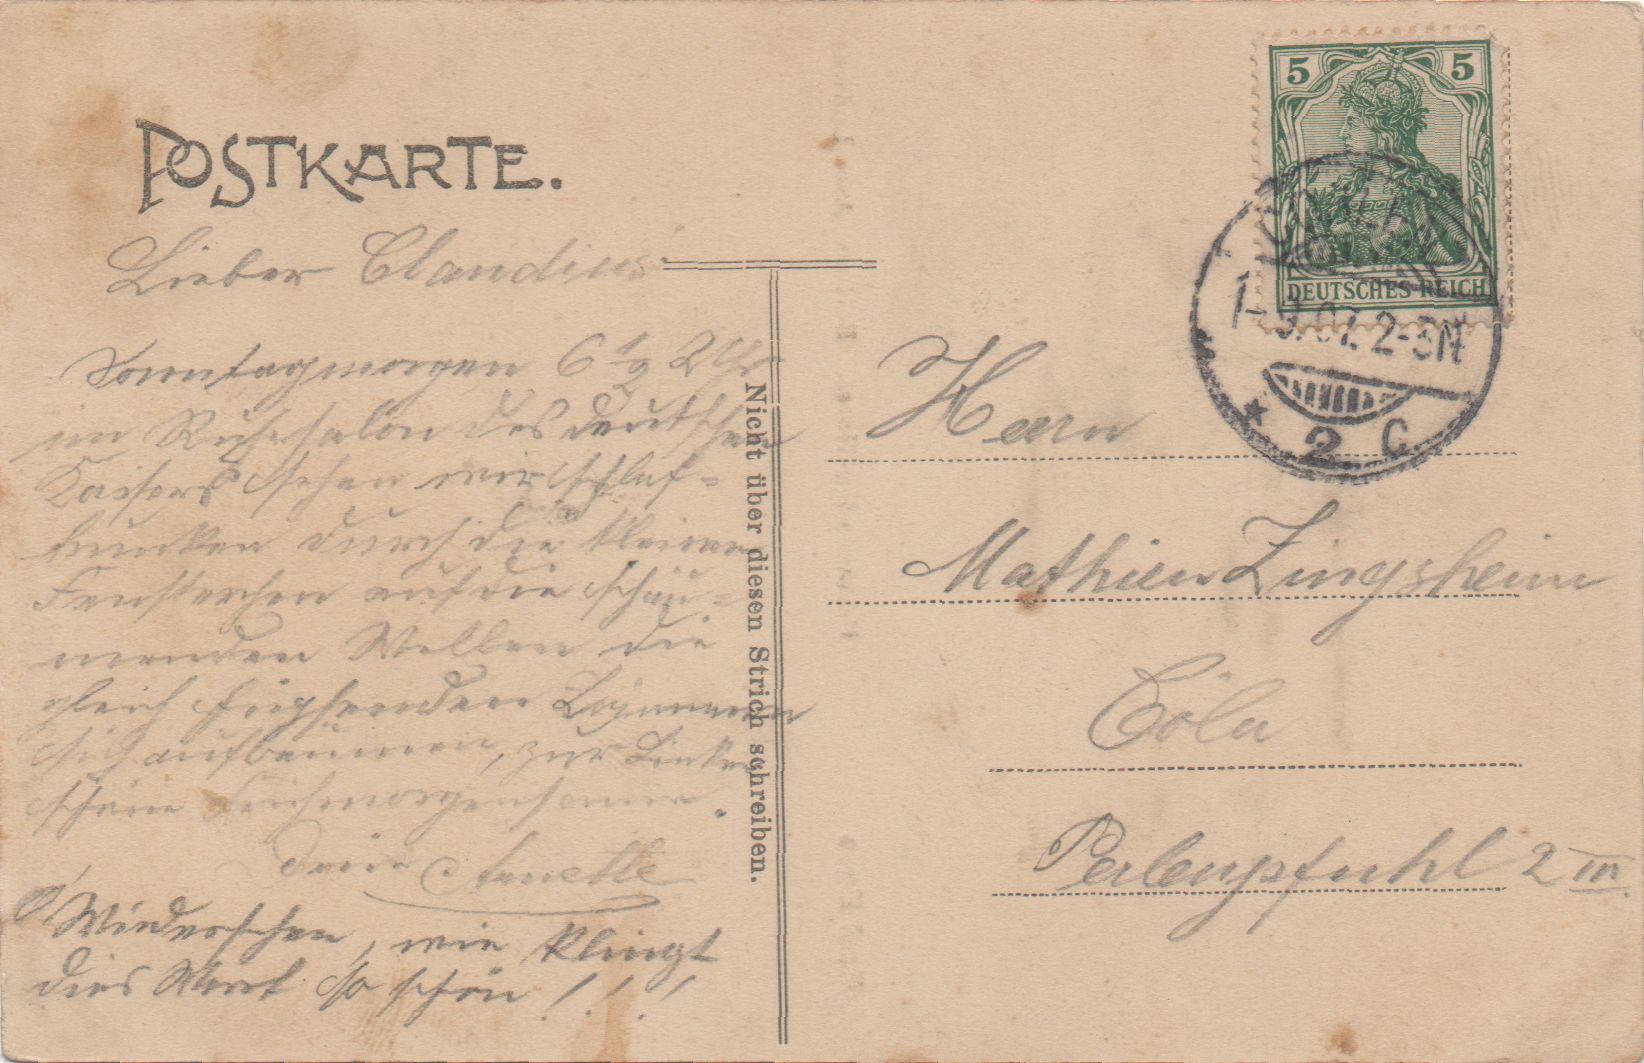 POSTKARTE.
Lieber Claudius
Sonntagmorgen 6 1/2 Uhr
im Ruhesalon des deutschen
Kaisers sehen wir schlaf=
trunken durch die kleinen
Fensterchen auf die schäu=
menden Wellen die
gleich hüpfenden
sich aufbäumen, zur Linken
schöne Frühmorgensonne.
Deine Annette
Wiedersehen, wie klingt
dies Wort so schön!!!
Nicht über diesen Strich schreiben.
5 5
DEUTSCHES REICH
9.07. 2-3N
* 2 C.
Herrn
Mathieu Zingsheim
Cöln
Perlenpfuhl 2 III.